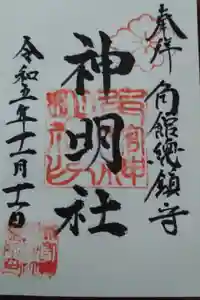 奉拝
角館總鎮守
神明社
令和五年十一月十一日